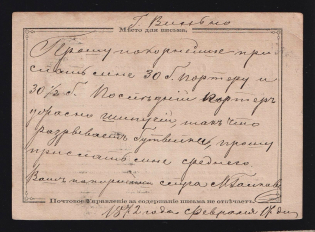 Г. Вильно
Мѣсто для письма.
Прошу покорнѣйше при-
слать мне 30 б. Портеру и
30 ½ б. Последний Портеръ
ужасно шипучій, такъ что
разрываетъ бутылки, прошу
прислать мне среднего
Вашъ покорный слуга М.
Почтовое Управленіе за содержаніе письма не отвѣчаетъ.
1872 года Февраля 17 дня